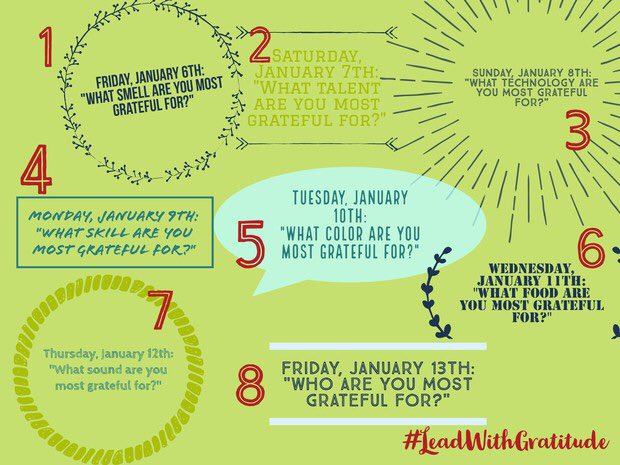 1
FRIDAY, JANUARY 6TH:
"WHAT SMELL ARE YOU MOST
GRATEFUL FOR?"
2
Saturday,
January 7th:
"What talent
are you most
grateful for?"
3
SUNDAY, JANUARY 8TH:
"WHAT TECHNOLOGY ARE
YOU MOST GRATEFUL
FOR?"
4
MONDAY, JANUARY 9TH:
"WHAT SKILL ARE YOU
MOST GRATEFUL FOR?"
5
TUESDAY, JANUARY
10TH:
"WHAT COLOR ARE YOU
MOST GRATEFUL FOR?"
6
WEDNESDAY,
JANUARY 11TH:
"WHAT FOOD ARE
YOU MOST GRATEFUL
FOR?"
7
Thursday, January 12th:
"What sound are you
most grateful for?"
8
FRIDAY, JANUARY 13TH:
"WHO ARE YOU MOST
GRATEFUL FOR?"
#LeadWithGratitude